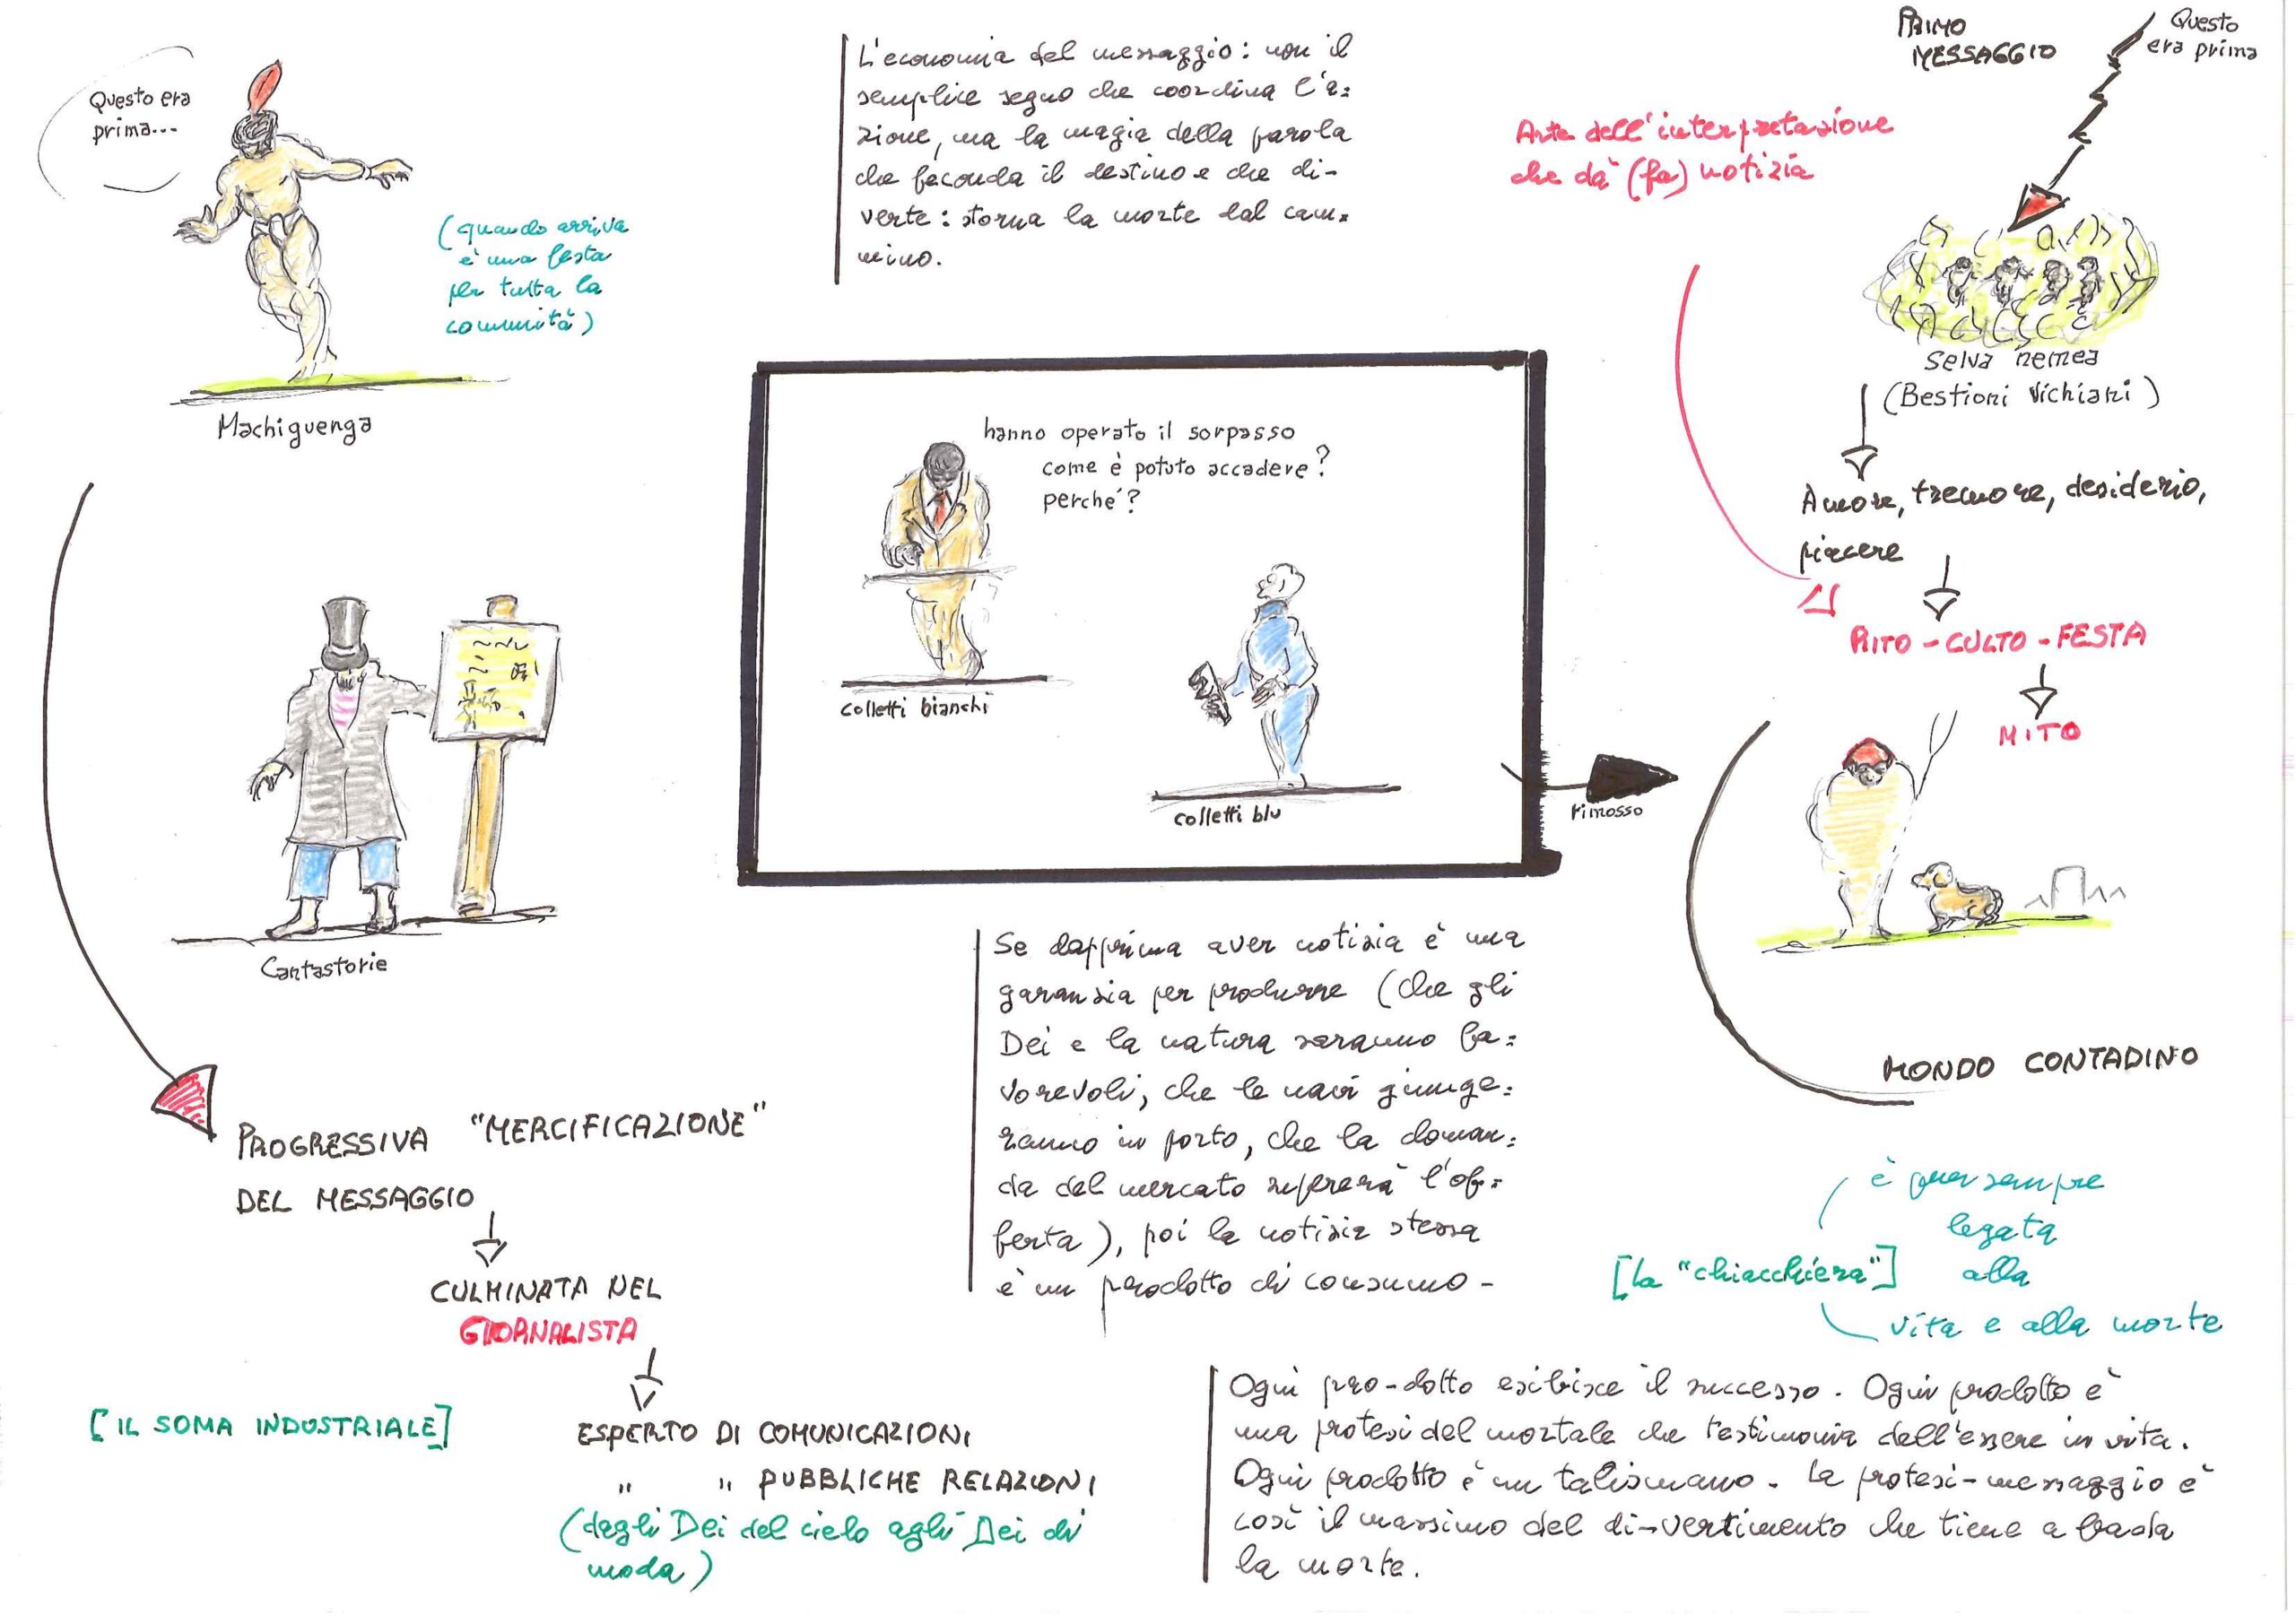 Questo era
prima...
(quando arriva
è una festa
per tutta la
comunità)
Machiguenga
Cantastorie
PROGRESSIVA "MERCIFICAZIONE"
DEL MESSAGGIO
CULMINATA NEL
GIORNALISTA
[IL SOMA INDUSTRIALE]
ESPERTO DI COMUNICAZIONI
" " PUBBLICHE RELAZIONI
(dagli Dei del cielo agli Dei di
moda)
L'economia del messaggio: non il
semplice segno che coordina l'a=
zione, ma la magia della parola
che feconda il destino e che di-
verte: storna la morte dal cam=
mino.
hanno operato il sorpasso
come è potuto accadere?
perché?
colletti bianchi
colletti blu
rimosso
Se dapprima aver notizia è una
garanzia per produrre (che gli
Dei e la natura saranno fa=
vorevoli, che le navi giunge=
ranno in porto, che la doman=
da del mercato supererà l'of=
ferta), poi la notizia stessa
è un prodotto di consumo-
PRIMO
MESSAGGIO
Questo
era prima
Arte dell'interpretazione
che dà (fa) notizia
Selva nemea
(Bestioni Vichiani)
Amore, tremore, desiderio,
piacere
RITO-CULTO-FESTA
MITO
MONDO CONTADINO
[la "chiacchiera"]
è pur sempre
legata
alla
vita e alla morte
Ogni pro-dotto esibisce il successo. Ogni prodotto è
una protesi del mortale che testimonia dell'essere in vita.
Ogni prodotto è un talismano. La protesi-messaggio è
così il massimo del di-vertimento che tiene a bada
la morte.